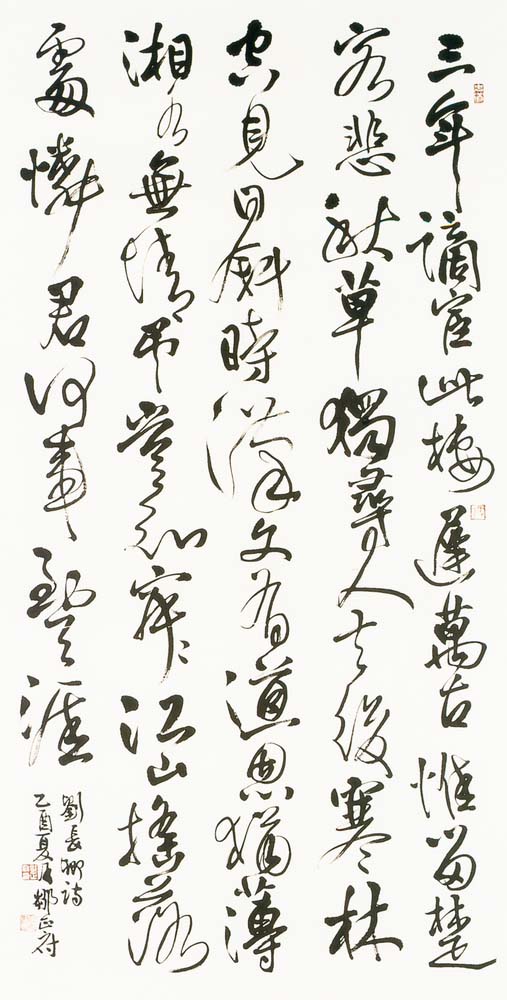 三年謫宦此棲遲萬古惟留楚
客悲秋草獨尋人去後寒林
空見日斜時漢文有道恩猶薄
湘水無情弔豈知寂〻江山搖落
處憐君何事到天涯
劉長卿詩
乙酉夏月